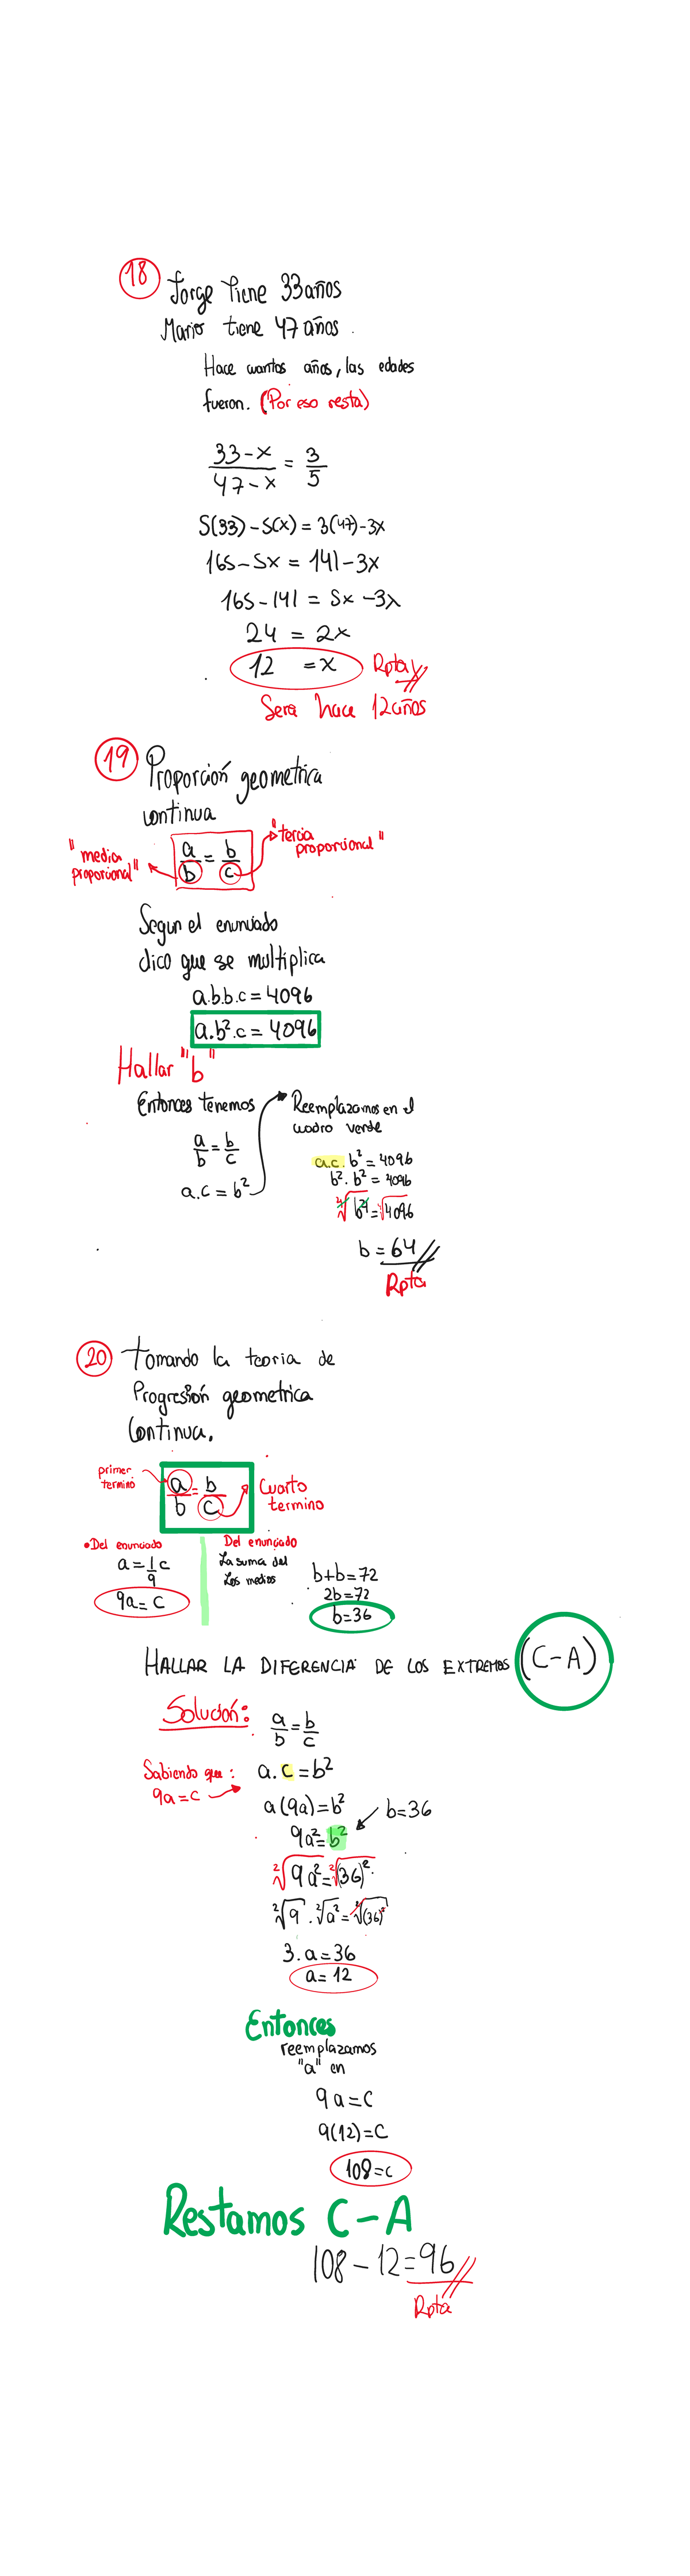 18 Jorge Tiene 33 años
Mario tiene 47 años.
Hace cuantos años, las edades
fueron. (Por eso resta)
33-x / 47-x = 3/5
5(33)-5(x)=3(47)-3x
165-5x = 141-3x
165-141 = 5x-3x
24 = 2x
12 = x Rpta
Sera hace 12 años
19 Proporción geometrica
continua
"media proporcional" a/b = b/c "tercia proporcional"
Segun el enunciado
dico que se multiplica
a.b.b.c=4096
a.b².c=4096
Hallar "b"
Entonces tenemos
a/b = b/c
a.c=b²
Reemplazamos en el
cuadro verde
a.c.b²=4096
b².b²=4096
⁴√b⁴=√4096
b=64
Rpta
20 Tomando la teoria de
Progresión geometrica
Continua.
primer termino a/b = b/c Cuarto termino
•Del enunciado
a=1/9 c
9a=c
Del enunciado
La suma del
Los medios
b+b=72
2b=72
b=36
HALLAR LA DIFERENCIA DE LOS EXTREMOS (C-A)
Solución: a/b = b/c
Sabiendo que: a.c=b²
9a=c
a(9a)=b²
9a²=b² b=36
²√9a²=²√(36)²
²√9.²√a²=²√(36)²
3.a=36
a=12
Entonces
reemplazamos
"a" en
9a=c
9(12)=c
108=c
Restamos C-A
108-12=96
Rpta